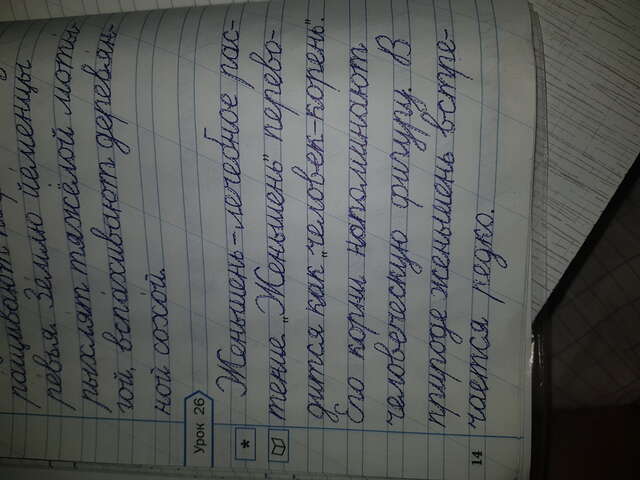 ращивают
ре́вья. Зе́млю йе́менцы
рыхля́т тяжёлой моты́-
гой, вспа́хивают деревя́н-
ной сохо́й.
Урок 26
Женьшень – лечебное рас-
*
тение. „Женьшень" перево-
дится как „человек-корень".
Его корни напоминают
человеческую фигуру. В
природе женьшень встре-
14 чается редко.